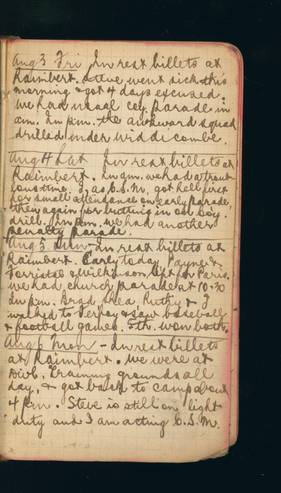 Aug 3 Fri In rest billets at
Raimbert. Steve went sick this
morning & got 4 days excused.
We had usual coy. parade in
a.m. In p.m. the awkward squad
drilled under Widdicombe.
Aug 4 Sat In rest billets at
Raimbert. In a.m. we had
time. I, as C.S.M., got hell first
for small attendance on early parade,
then again for butting in on coy.
drill. In p.m. we had another
penalty parade.
Aug 5 Sun - In rest billets at
Raimbert. Early today Payne &
Forrister & Wilkinson left for Paris.
We had church parade at 10.30
In p.m. Brad Shea Ruthy & I
walked to & saw baseball
& football games. 5th. won both.
Aug 6 Mon - In rest billets
at Raimbert. We were at
Divb. Training grounds all
day, & got back to camp about
4 p.m. Steve is still on light
duty and I am acting C.S.M.